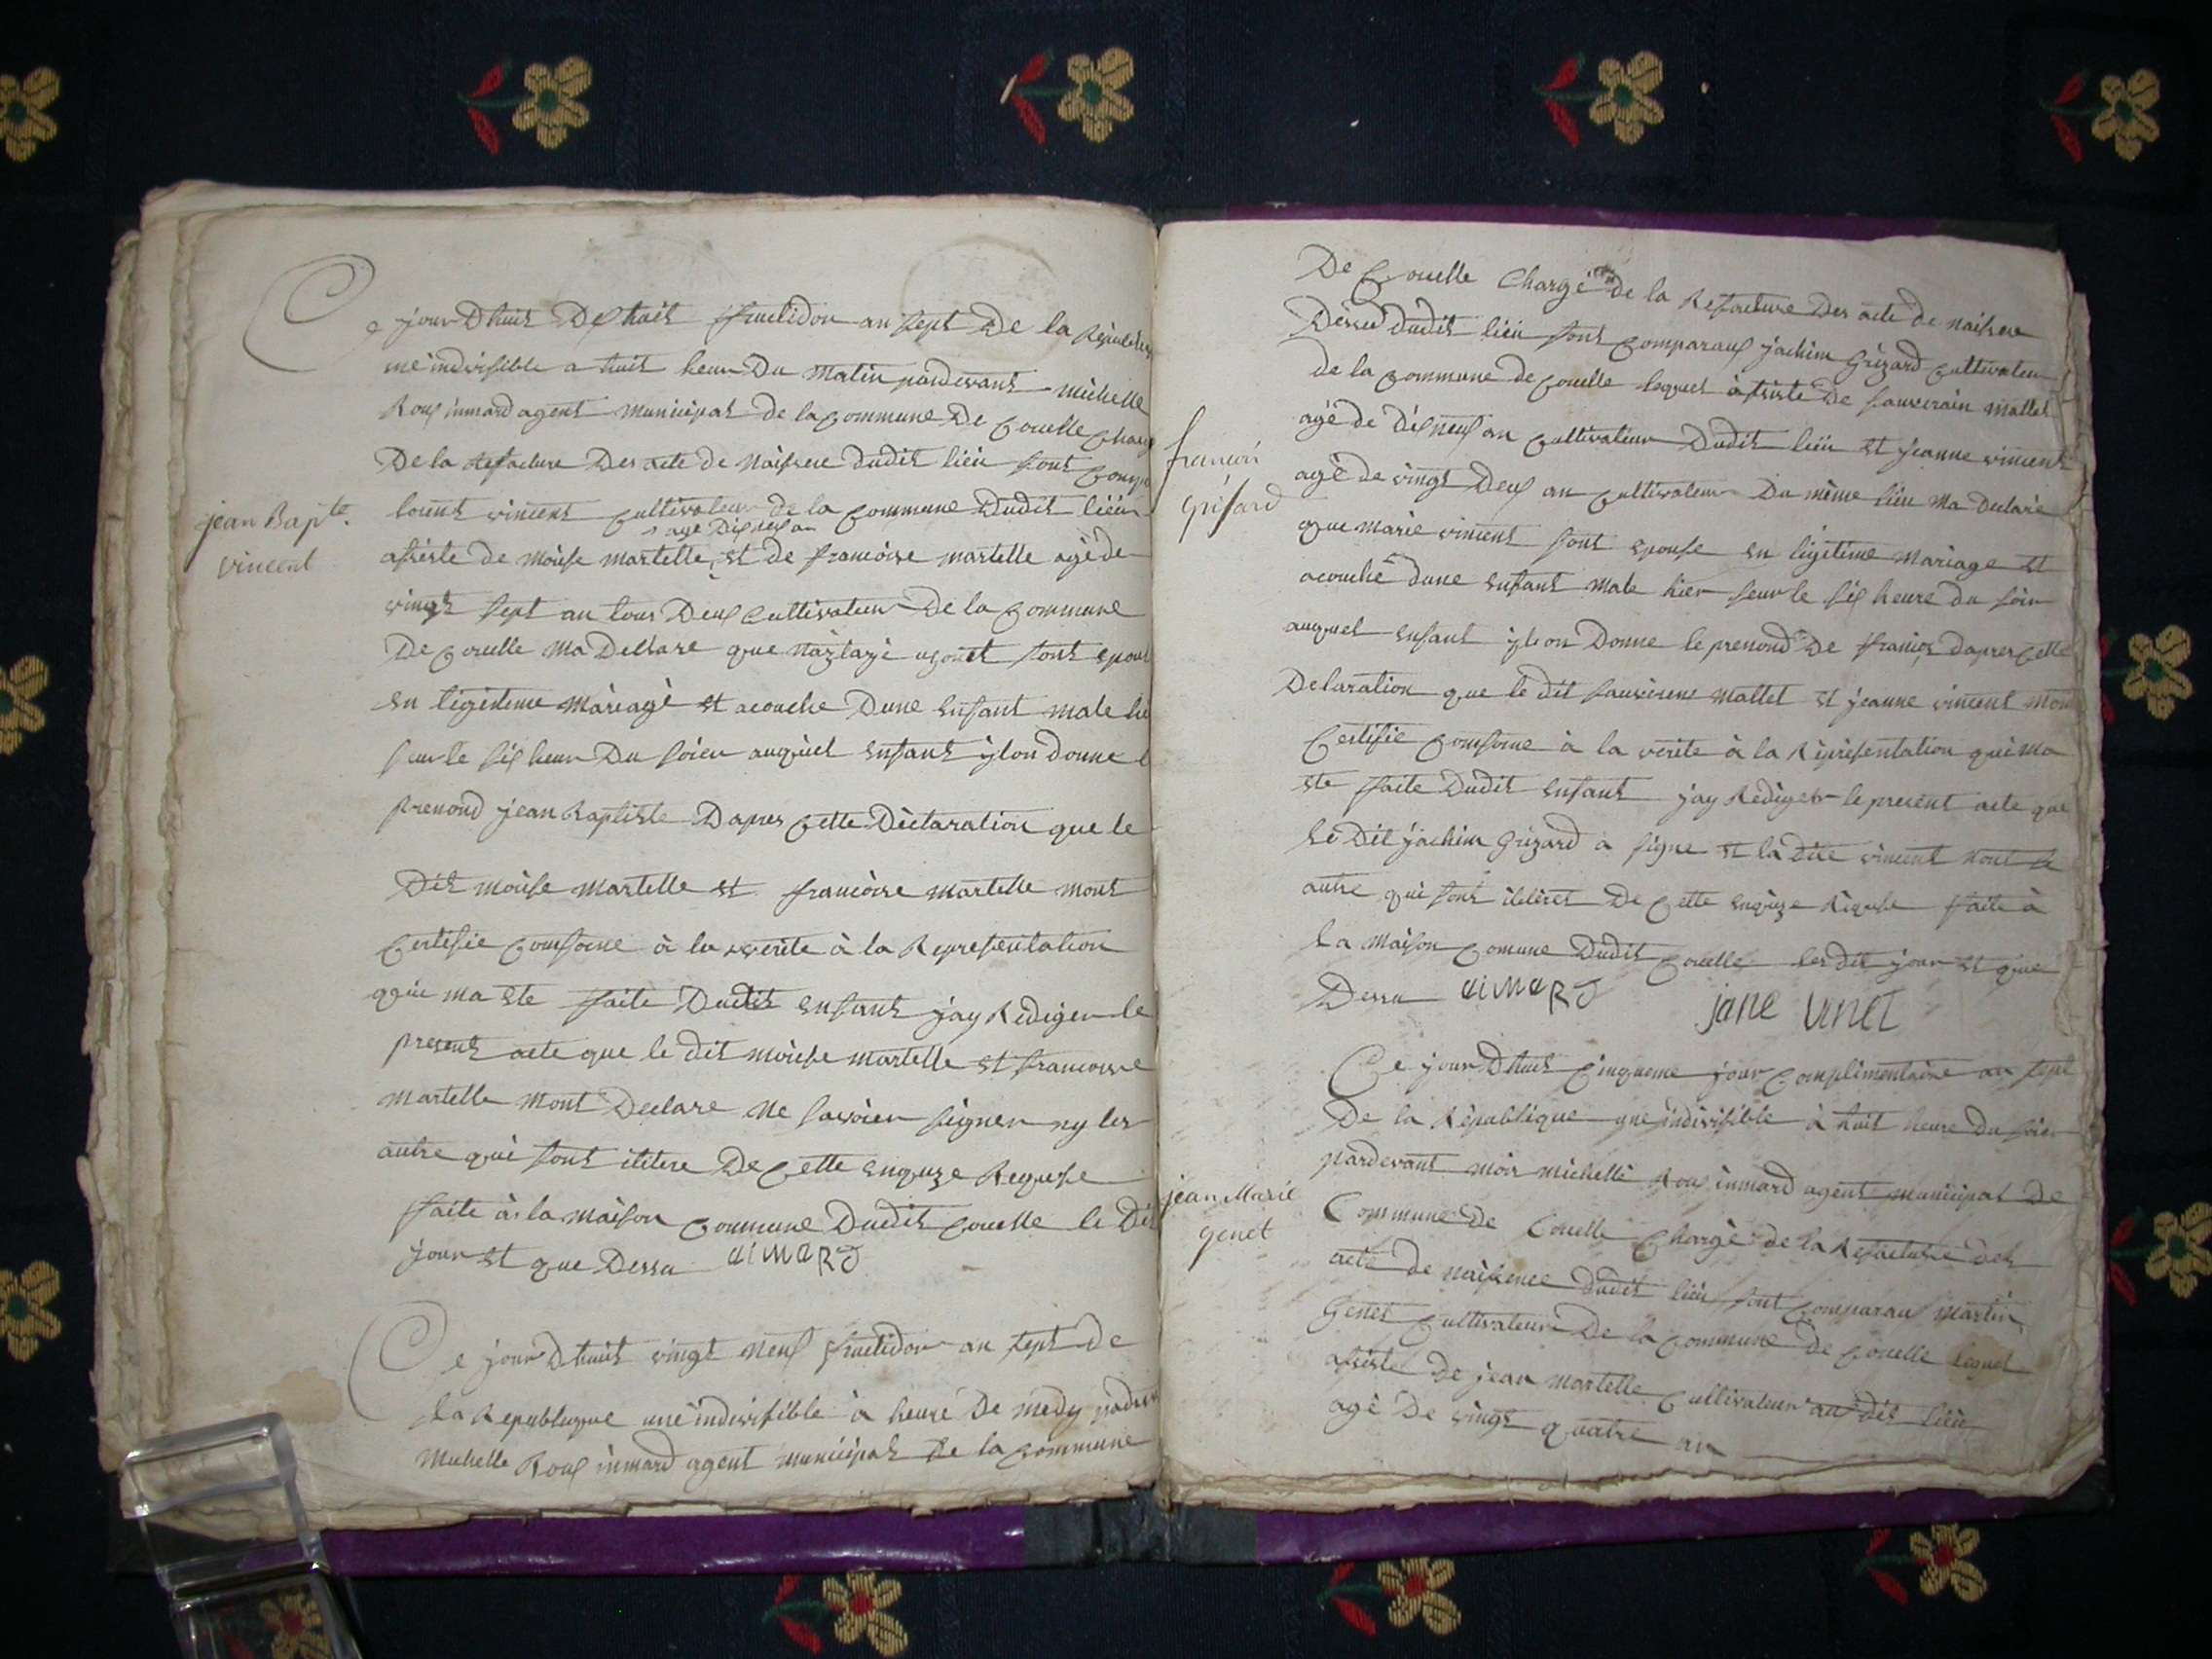 Ce jour Dhuit Dixhuit fructidor an sept De la Republi
une indivisible a huit heur Du Matin pardevant michelle
Roux inmard agent municipal de la commune De couelle charg
De la Refacture Des acte de Naissene dudit lieu sont comp
jean Bapte.
vincent
lorent vincent cultivateur de la commune Dudit lieu
age Dixneuf an
assiste de moïse martelle, et de francoise martelle agé de
vingt sept an tous Deux cultivateur De la commune
De couelle ma Dellare que sont epous
en legiteme màriagè et acouche Dune enfant male hie
sur le six heur Du soier auquel enfant ylon donne l
prenond jean Baptiste Dapres cette Déctaration que le
Dit moïse martelle et francoise martelle mont
certifie comforme à la verite à la Representation
qui ma ete faite Dudit enfant jay Rediger le
present acte que le dit moïse martelle et francoise
martelle mont Declare Ne savoier signer ny les
autre qui sont de cette Requise
faite à la maison commune Dudit couelle le Dit
jour et que Dessu aimard
Ce jour Dhuit vingt neuf fructidor an sept de
la Republique une indivisible à heure De medy
Michelle Roux inmard agent municipal De la commune
De Couelle Chargé de la Refacture Des acte de naissene
Déssus dudit lieu sont comparaux jachim Grizard cultivateur
de la commune de couelle lequel assiste De sauverain mallet
francoi
Grisard
agé de dixneuf an cultivateur Dudit lieu et jeanne vincent
agè de vingt Deux an cultivateur Du même lieu Ma Declarè
que marie vincent sont epouse en ligitime Mariage et
acouché dune enfant male hier seur le six heure du soir
auquel enfant ylon Donne le prenond De franços Dapres cette
Delaration que le dit mallet et jeanne vincent mon
certifie comforme à la verite à la Réprésentation qui ma
ete faite Dudit enfant jay Rediger le present acte que
Le Dit jachim Grizard a signe et la dite vincent nont
autre qui sont De cette Requise faite à
La maison comune Dudit couelle les dit jour et que
Dessu aimard jane vinct
Ce jour Dhuit cinqueme jour complimentaire an sept
De la Republique une indivisible à huit heure Du soir
pardevant mois michelle Roux inmard agent municipal De
jean Marie
genet
Commune De Couelle chargè de la Refacture des
acte De naissence dudit lieu sont comparau martin
Genet cultivateur De la commune de couelle lequel
assiste de jean martelle cultivateur au dit lieu
agè De vingt quatre an